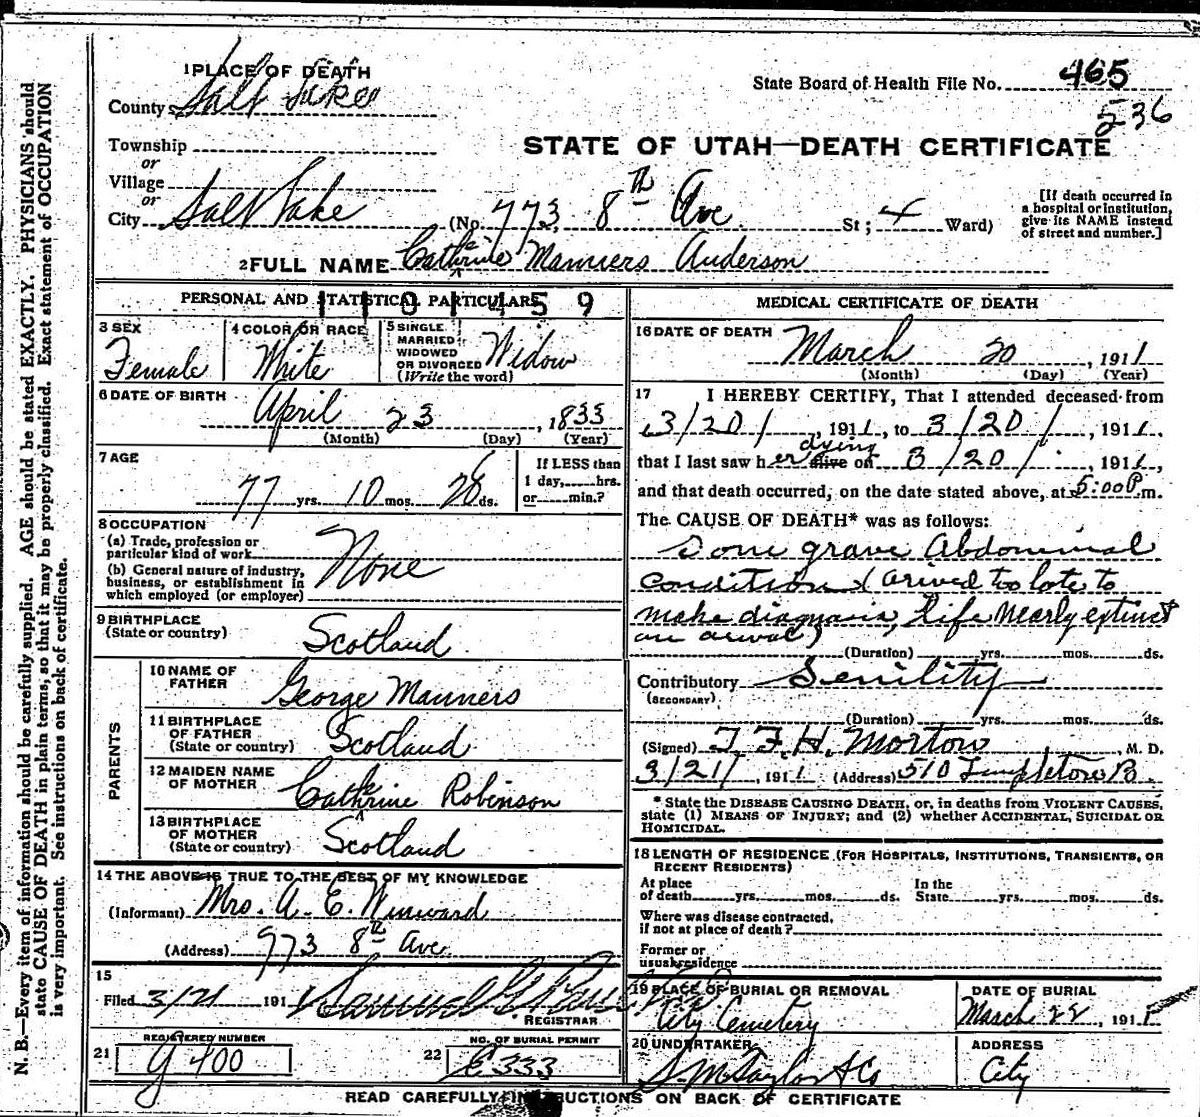 1 PLACE OF DEATH
County Salt Lake
State Board of Health File No. 465
536
Township
or
Village
or
City Salt Lake (No. 773, 8th Ave. St; 4 Ward)
STATE OF UTAH—DEATH CERTIFICATE
[If death occurred in a hospital or institution, give its NAME instead of street and number.]
2 FULL NAME Cathrine Manners Anderson
PERSONAL AND STATISTICAL PARTICULARS
110 459
3 SEX Female
4 COLOR OR RACE White
5 SINGLE MARRIED WIDOWED OR DIVORCED (Write the word) Widow
6 DATE OF BIRTH
April 23, 1833
(Month) (Day) (Year)
7 AGE
77 yrs. 10 mos. 28 ds.
If LESS than
1 day, hrs.
or min.?
8 OCCUPATION
(a) Trade, profession or
particular kind of work
(b) General nature of industry,
business, or establishment in
which employed (or employer)
None
9 BIRTHPLACE
(State or country) Scotland
PARENTS
10 NAME OF
FATHER George Manners
11 BIRTHPLACE
OF FATHER
(State or country) Scotland
12 MAIDEN NAME
OF MOTHER Cathrine Robinson
13 BIRTHPLACE
OF MOTHER
(State or country) Scotland
14 THE ABOVE IS TRUE TO THE BEST OF MY KNOWLEDGE
(Informant) Mrs. A. E. Winward
(Address) 773 8th Ave.
15
Filed 3/21 1911
REGISTRAR
21 REGISTERED NUMBER
G 400
22 NO. OF BURIAL PERMIT
C 333
MEDICAL CERTIFICATE OF DEATH
16 DATE OF DEATH
March 20, 1911
(Month) (Day) (Year)
17 I HEREBY CERTIFY, That I attended deceased from
3/20/, 1911, to 3/20/, 1911,
that I last saw her alive dying on 3/20/, 1911,
and that death occurred, on the date stated above, at 5:00 P.m.
The CAUSE OF DEATH* was as follows:
Some grave Abdominal
condition (arived too late to
make diagnosis, Life nearly extinct
on arival)
(Duration) yrs. mos. ds.
Contributory Senility
(SECONDARY)
(Duration) yrs. mos. ds.
(Signed) T. F. H. Morton, M. D.
3/21/, 1911 (Address) 510 Templeton B.
* State the DISEASE CAUSING DEATH, or, in deaths from VIOLENT CAUSES,
state (1) MEANS OF INJURY; and (2) whether ACCIDENTAL, SUICIDAL OR
HOMICIDAL.
18 LENGTH OF RESIDENCE (FOR HOSPITALS, INSTITUTIONS, TRANSIENTS, OR
RECENT RESIDENTS)
At place
of death yrs. mos. ds.
In the
State yrs. mos. ds.
Where was disease contracted,
if not at place of death?
Former or
usual residence
19 PLACE OF BURIAL OR REMOVAL
City Cemetery
DATE OF BURIAL
March 22, 1911
20 UNDERTAKER
S. M. Taylor & Co
ADDRESS
City
READ CAREFULLY INSTRUCTIONS ON BACK OF CERTIFICATE
N. B.—Every item of information should be carefully supplied. AGE should be stated EXACTLY. PHYSICIANS should
state CAUSE OF DEATH in plain terms, so that it may be properly classified. Exact statement of OCCUPATION
is very important. See instructions on back of certificate.